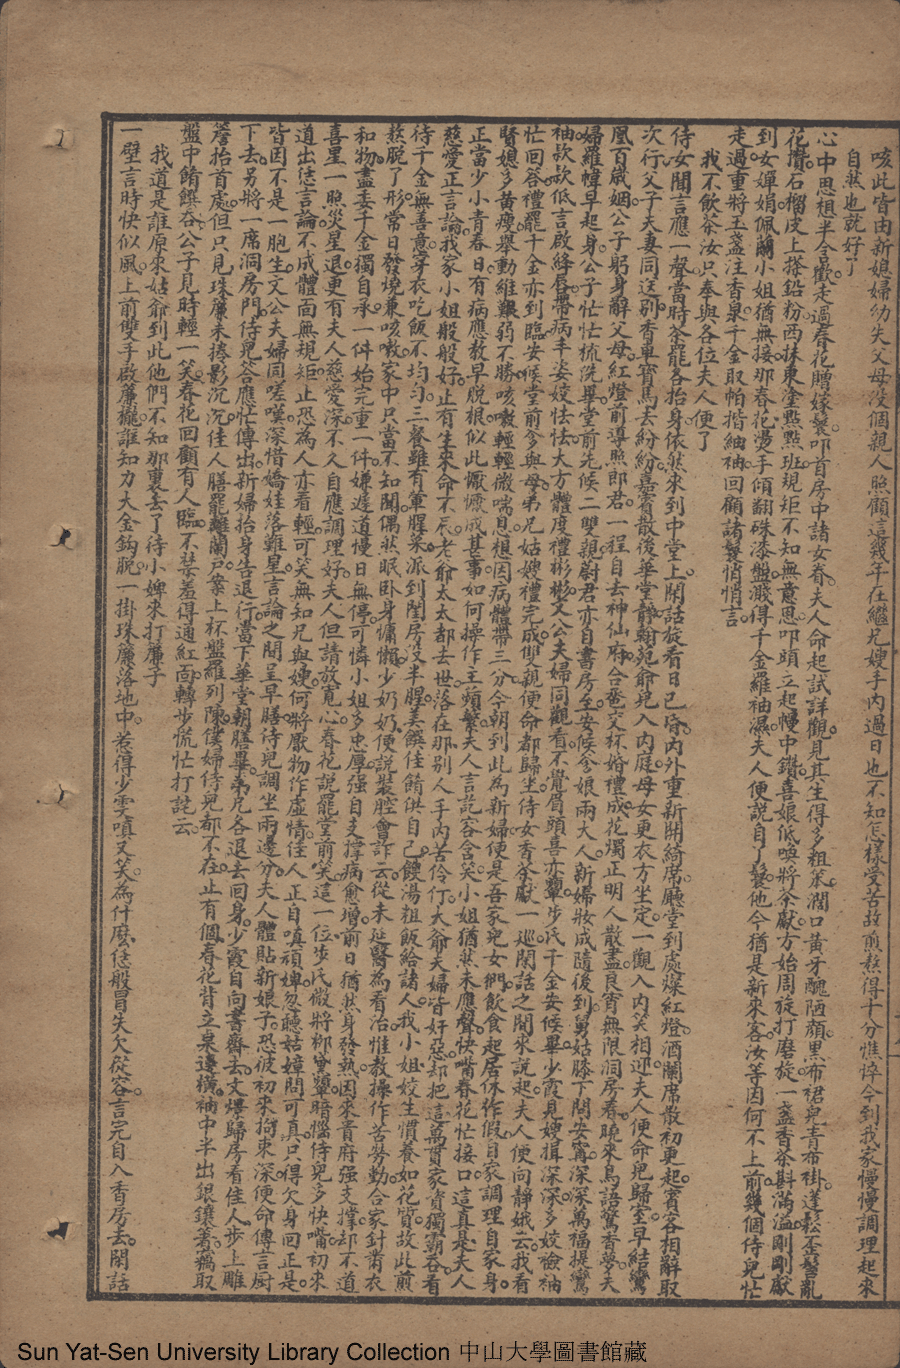 咳此皆由新媳婦幼失父母沒個親人照顧這幾年在繼兄嫂手內過日也不知怎樣受苦故煎熬得十分憔悴今到我家慢慢調理起來
自然也就好了
心中思想半含歡走過春花贈嫁鬟叩首房中諸女眷夫人命起試詳觀見其生得多粗笨濶口黃牙醜陋顏黑布裙兒青布褂蓬鬆歪髻亂
花攢石榴皮上搽鉛粉西抹東塗點點班規矩不知無意思叩頭立起幔中鑽喜娘低喚將茶獻方始周旋打磨旋一盞香茶斟滿溢剛剛獻
到女嬋娟佩蘭小姐猶無接那春花燙手傾翻硃漆盤濺得千金羅袖濕夫人便說自了鬟他今猶是新來客汝等因何不上前幾個侍兒忙
走過重將玉盞注香泉千金取帕揩紬袖回顧諸鬟悄悄言
我不飲茶汝只奉與各位夫人便了
侍女聞言應一聲當時茶罷各抬身依然來到中堂上閒話旋看日已昏內外重新開綺席廳堂到處燦紅燈酒闌席散初更起賓客相辭取
次行父子夫妻同送別香車寶馬去紛紛嘉賓散後華堂靜翰苑爺兒入內庭母女更衣方坐定一觀入內笑相迎夫人便命兒歸室早結鸞
凰百歲姻公子躬身辭父母紅燈前導照郎君一程自去神仙府合卺交杯婚禮成花燭正明人散盡良宵無限洞房春曉來鳥語驚香夢夫
婦羅幃早起身公子忙忙梳洗畢堂前先候二雙親蔚君亦自書房至安候爹娘兩大人新婦妝成隨後到舅姑膝下問安寗深深萬福提鸞
袖款款低言啟絳唇帶病丰姿姣怯怯大方體度禮彬彬文公夫婦同觀看不覺眉頭喜亦顰步氏千金安候畢少霞見嫂揖深深多姣襝袖
忙回答禮罷千金亦到臨安候堂前爹與母弟兄姑嫂禮完成雙親便命都歸坐侍女香茶獻一巡閒話之間來說起夫人便向靜娥云我看
賢媳多黃瘦舉動維艱弱不勝咳嗽輕輕微喘息想因病體帶三分今朝到此為新婦便是吾家兒女們飲食起居休作假自家調理自家身
正當少小青春日有病應教早脫根似此懨懨成甚事如何操作主蘋蘩夫人言訖容含笑小姐猶然未應聲快嘴春花忙接口這真是夫人
慈愛正言論我家小姐般般好止有生來命不辰老爺太太都去世落在那別人手內苦伶仃大爺夫婦皆奸惡却把這萬貫家資獨霸吞看
待千金無善意穿衣吃飯不均勻三餐雖有葷腥菜派到閨房沒半腥美饌佳餚供自己餿湯粗飯給諸人我小姐姣生慣養如花質故此煎
熬脫了形常日發燒兼咳嗽家中只當不知聞偶然眠卧身慵懶少奶奶便說裝腔會詐云從未延醫為看治惟教操作苦勞動今家針黹衣
和物盡委千金獨自承一件始完重一件嫌遲道慢日無停可憐小姐多忠厚强自支撐病愈增前日猶然身發熱因來貴府强支撐却不道
喜星一照災星退更有夫人慈愛深不久自應調理好夫人但請放寬心春花說罷堂前笑這一位步氏微將柳黛顰暗惱侍兒多快嘴初來
道出恁言論不成體面無規矩止恐為人亦看輕可笑無知兄與嫂何將厭物作虛情佳人正自嗔頑婢忽聽姑嫜問可真只得欠身回正是
皆因不是一胞生文公夫婦同嗟嘆深惜嬌娃落難星言論之間呈早膳侍兒調坐兩邊分夫人體貼新娘子恐彼初來拘束深便命傳言厨
下去另將一席洞房門侍兒答應忙傳出新婦抬身告退行當下華堂朝膳畢弟兄各退去回身少霞自向書齋去文爆歸房看佳人步上雕
簷抬首處但只見珠簾未捲影沉沉佳人膳罷離蘭戶案上杯盤羅列陳僕婦侍兒都不在止有個春花背立桌邊橫袖中半出銀鑲箸竊取
盤中餚饌吞公子見時輕一笑春花回顧有人臨不禁羞得通紅面轉步慌忙打詫云
我道是誰原來姑爺到此他們不知那裏去了待小婢來打簾子
一壁言時快似風上前雙手啟簾櫳誰知力大金鈎脫一掛珠簾落地中惹得少雯嗔又笑為什麼恁般冒失欠從容言完自入香房去閑話
Sun Yat-Sen University Library Collection 中山大學圖書館藏